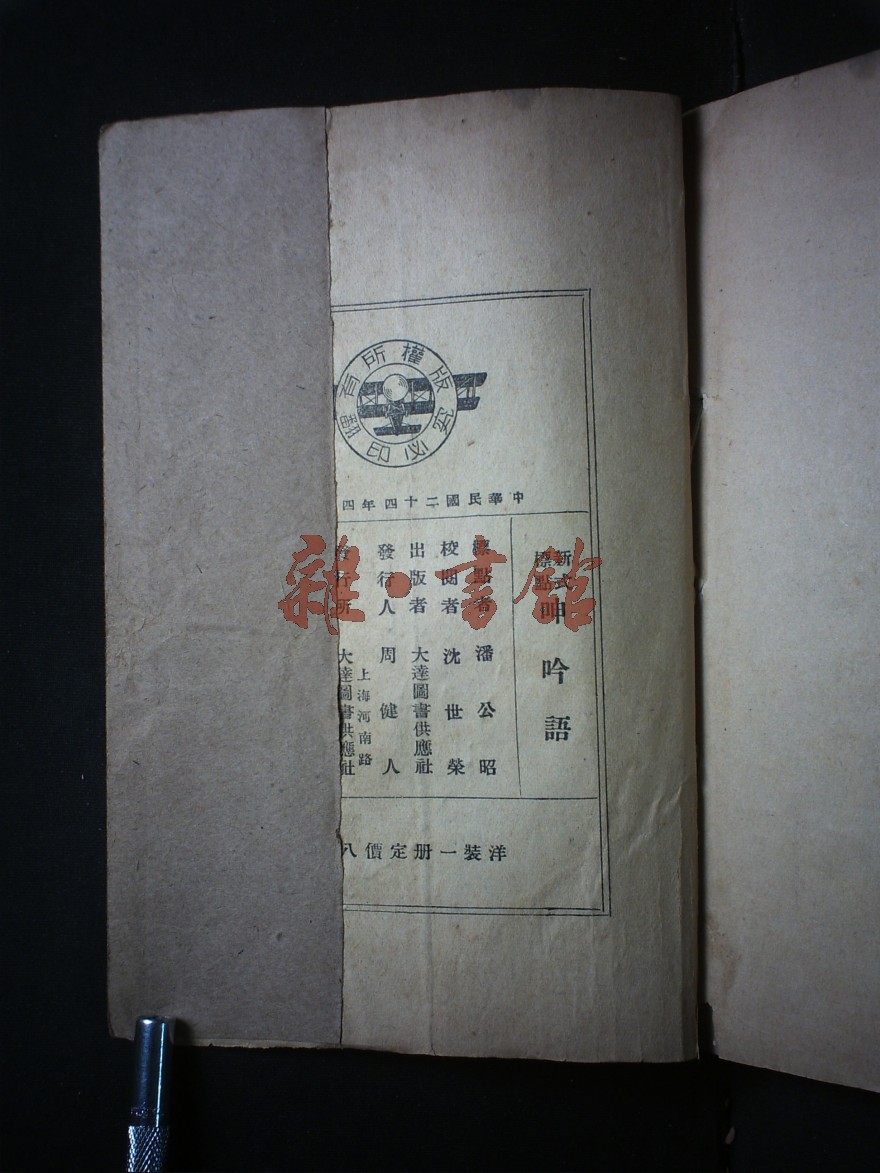 版權所有
翻印必究
中華民國二十四年四
新式標點
呻吟語
標點者 潘公昭
校閱者 沈世榮
出版者 大達圖書供應社
發行人 周健人
上海河南路
發行所 大達圖書供應社
洋裝一册定價八
雜·書館